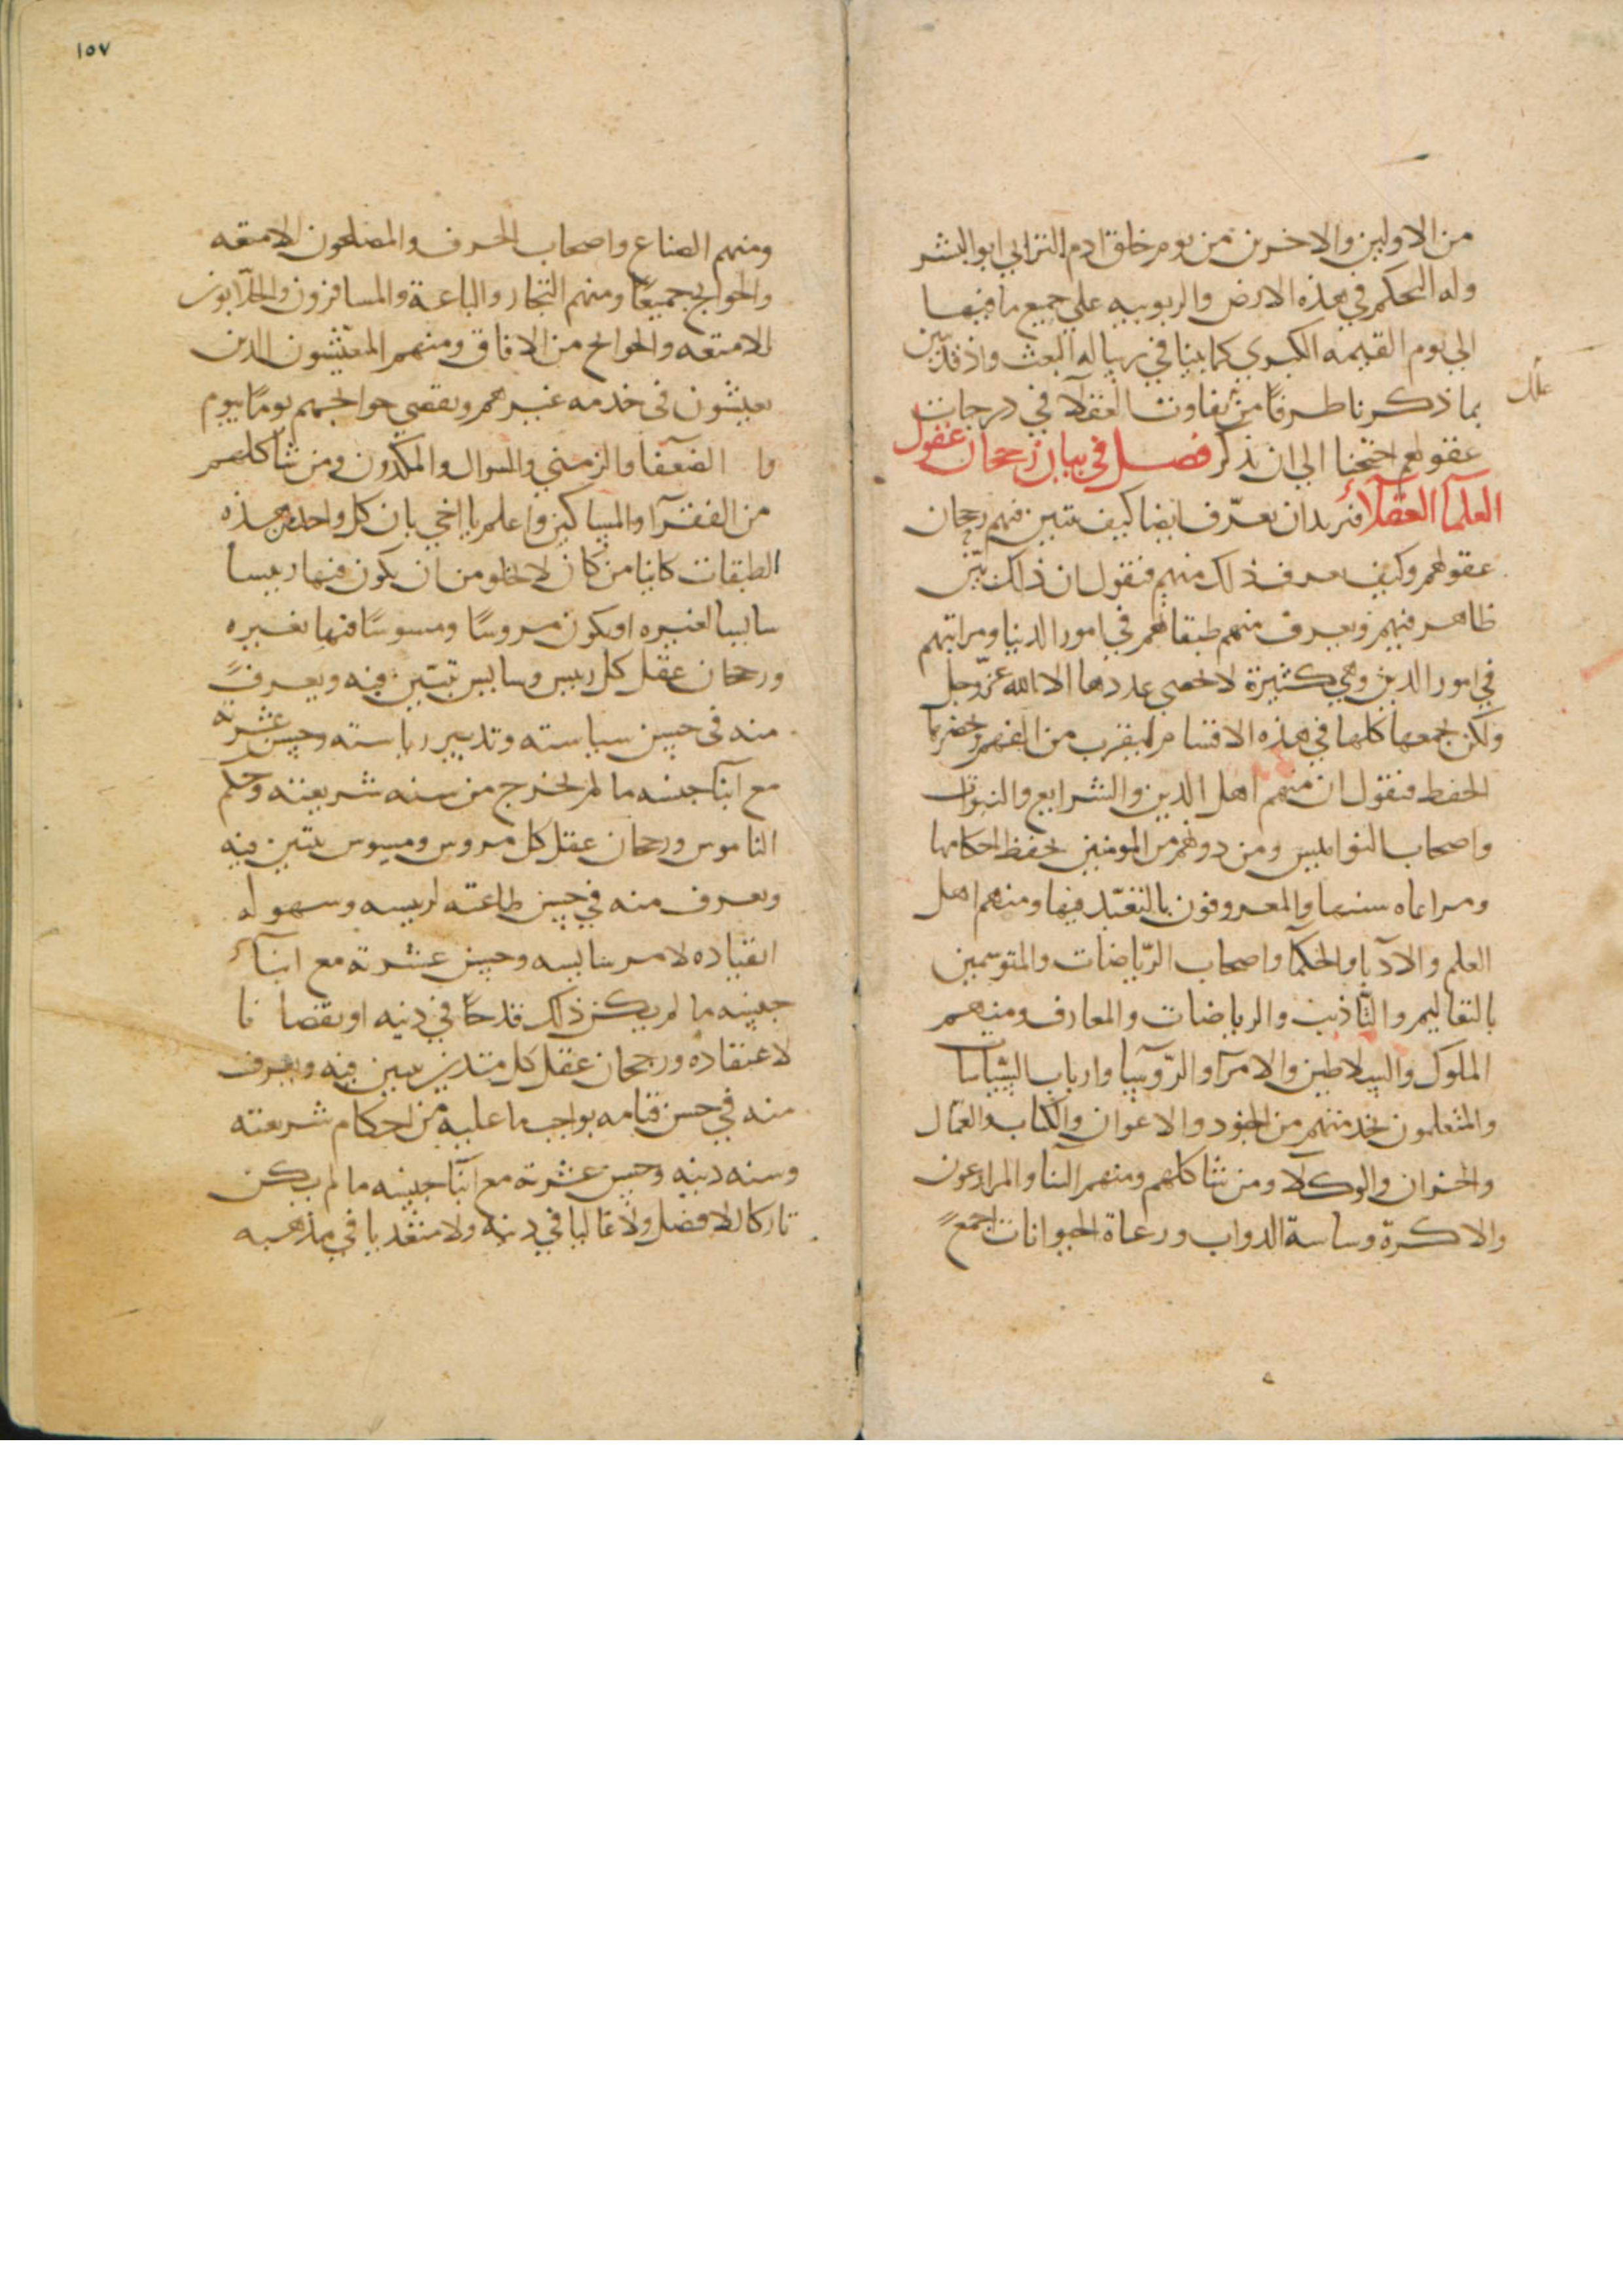 من الاولين والاخرين من يوم خلق ادم الترابي ابو البشر
وله التحكم في هذه الارض والربوبيه علي جميع ما فيها
الي يوم القيمه الكبري كما بينا في رساله البعث واذ قد تبين
بما ذكرنا طرفا من تفاوت العقلا في درجات
عقولهم احتجنا الي ان نذكر فصل في بيان رجحان عقول
العلمآ العقلآء فنريد ان نعرّف ايضا كيف يتبين فيهم رجحان
عقولهم وكيف يعرف ذلك منهم فنقول ان ذلك بيّن
ظاهر فيهم ويعرف منهم طبقاتهم في امور الدنيا ومراتبهم
في امور الدين وهي كثيرة لا تحصي عددها الا الله عزّ وجل
ولكن نجمعها كلها في هذه الاقسام ليقرب من الفهم
الحفظ فنقول ان منهم اهل الدين والشرايع والنبوات
واصحاب النواميس ومن دونهم من المومنين بحفظ احكامها
ومراعاه سننها والمعروفون بالتعبّد فيها ومنهم اهل
العلم والآدبا والحكمآ واصحاب الرّياضات والمتوسمين
بالتعاليم والتّاديب والرياضات والمعارف ومنهم
الملوك والسلاطين والامرآ والرّوسآ وارباب السياسات
والمتعلمون بخدمتهم من الجنود والاعوان والكتاب والعمّال
والخزان والوكلا ومن شاكلهم ومنهم البنا والمزارعون
والاكرة وساسة الدواب ورعاة الحيوانات اجمع
١٥٧
ومنهم الصناع واصحاب الحرف والمصلحون الامتعه
والحوايج جميعًا ومنهم التجار والباعة والمسافرون والجلّابون
للامتعه والحوايج من الافاق ومنهم المعيّشون الذين
يعيشون في خدمه غيرهم ويقضي حوايجهم يومًا بيوم
وا الضعفآ والزمني والسوال والمكدون ومن شاكلهم
من الفقرآ والمساكين واعلم يا اخي بان كل واحد من هذه
الطبقات كاينا من كان لا يخلو من ان يكون فيها رييسا
سايسا لغيره او يكون مروسًا ومسوسًا فيها بغيره
ورجحان عقل كل رييس وسايس تتبّين فيه ويعرف
منه في حسن سياسته وتدبير رياسته وحسن عشرته
مع ابنآ جنسه ما لم يخرج من سنه شريعته وحكم
الناموس ورجحان عقل كل مروس ومسوس يتبين فيه
ويعرف منه في حسن طاعته لرييسه وسهوله
انقياده لامر سايسه وحسن عشرته مع ابنآء
جنسه ما لم يكن ذلك قدحًا في دينه او نقصانا
لاعتقاده ورجحان عقل كل متدين يتبين فيه ويعرف
منه في حسن قيامه بواجب ما عليه من احكام شريعته
وسنه دينه وحسن عشرته مع ابنآ جنسه ما لم يكن
تاركا للافضل ولا غاليا في دينه ولا متعديا في مذهبه